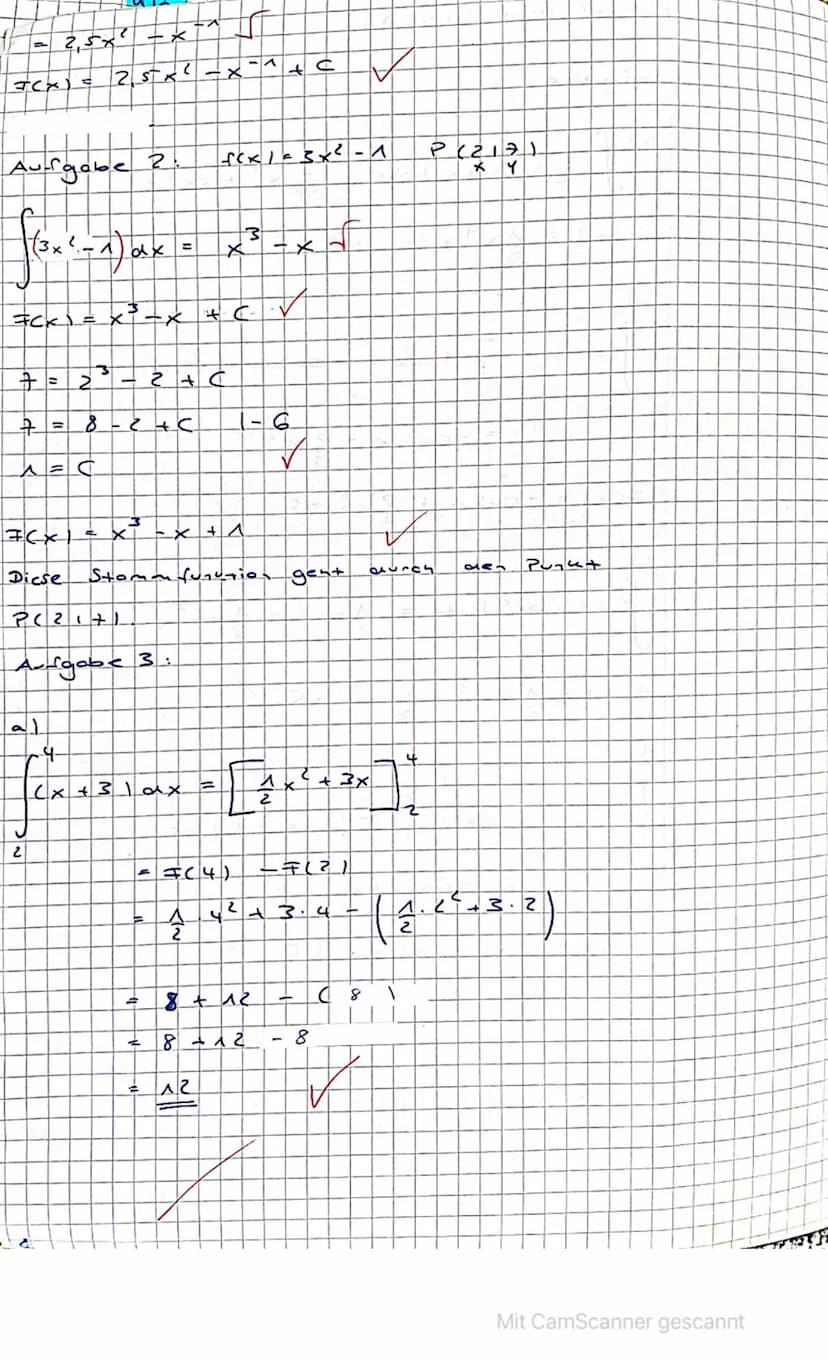 = 2,5x² - x⁻¹ √
F(x) = 2,5x² - x⁻¹ + C ✓
Aufgabe 2: f(x) = 3x² - 1 P(2|7)
x y
∫(3x² - 1) dx = x³ - x √
F(x) = x³ - x + C ✓
7 = 2³ - 2 + C
7 = 8 - 2 + C |- 6
1 = C ✓
F(x) = x³ - x + 1 ✓
Diese Stammfunktion geht durch den Punkt
P(2|7).
Aufgabe 3:
a)
∫₂⁴ (x + 3) dx = [1/2 x² + 3x]₂⁴
= F(4) - F(2)
= 1/2 · 4² + 3 · 4 - (1/2 · 2² + 3 · 2)
= 8 + 12 - (8)
= 8 + 12 - 8
= 12 ✓
Mit CamScanner gescannt